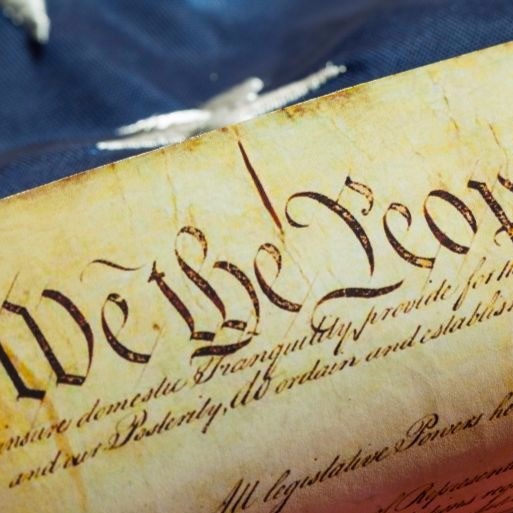 We the Peop
insure domestic Tranquility, provide for th
and our Posterity, do ordain and establish
All legislative Powers he
of Represen